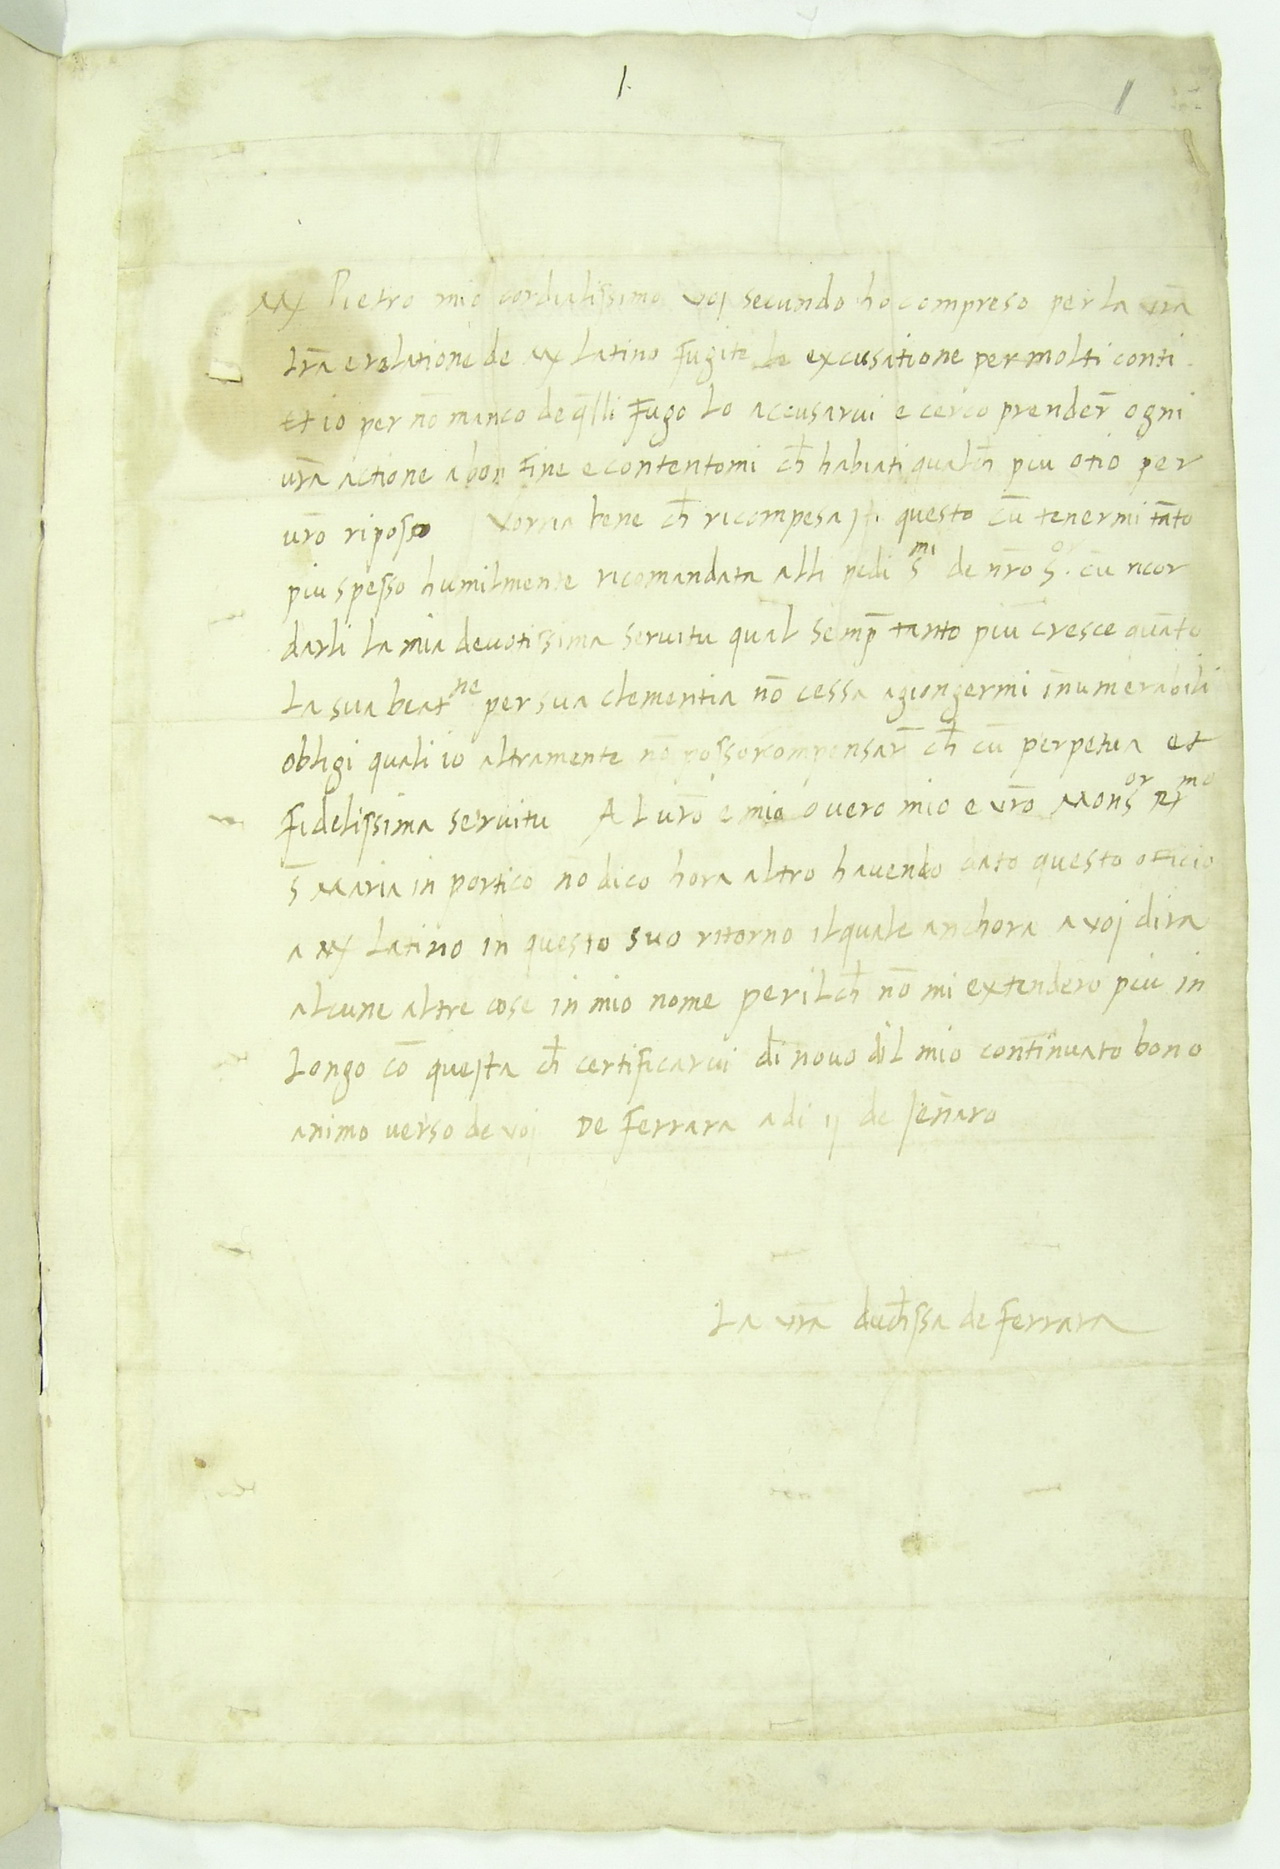 1.
1
M Pietro mio cordialissimo voj secundo ho compreso per la vr̄a
lr̄a e relatione de M Latino fugite le excusatione per molti conti
et io per nō manco de q̄lli fugo lo accusarvi e cerco prender̄ ogni
vr̄a actione a bon fine e contentomi ch̄ habiati qualch̄ piu otio per
vr̄o riposso vorria bene ch̄ ricompesasti questo cū tenermi tāto
piu spesso humilmente ricomandata alli pedi s̄mi de nr̄o S.or cū ricor
darli la mia devotissima servitu qual semp̄ tanto piu cresce quāto
la sua beatne per sua clementia nō cessa agiongermi īnumerabili
obligi quali io altramente nō posso ricompensar̄ ch̄ cū perpetua et
fidelissima servitu Al vr̄o e mio overo mio e vr̄o Monsor
S̄ Maria in portico nō dico hora altro havendo dato questo officio
a M Latino in questo suo ritorno ilquale anchora a voj dira
alcune altre cose in mio nome perilch̄ nō mi extendero piu in
longo cō questa ch̄ certificarvi di novo dil mio continuato bono
animo verso de voj De Ferrara a di ij de Jenaro
La vr̄a duch̄ssa de Ferrara